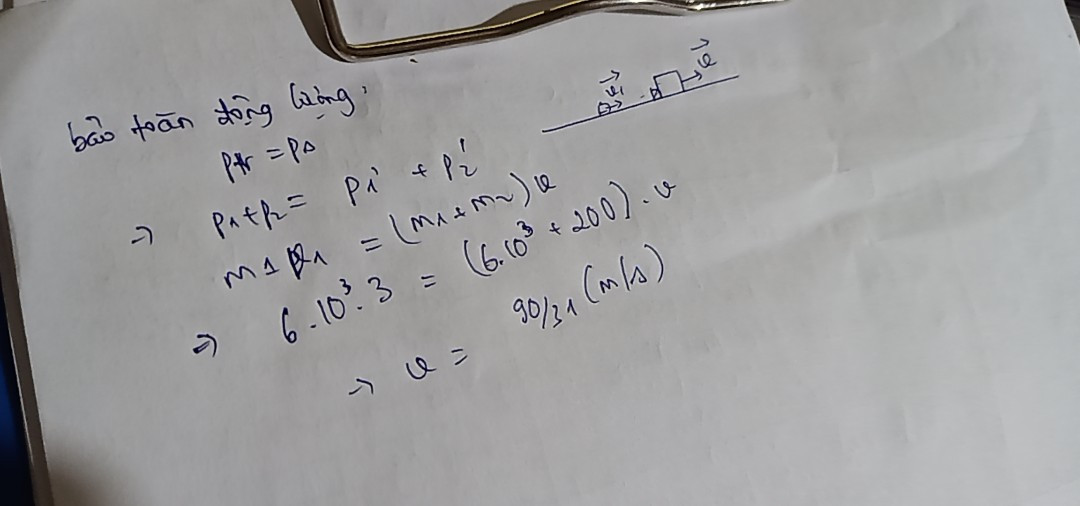 bảo toàn động lượng:
ptr = ps
v₁ v
→ p1+p2 = p1' + p2'
m1v1 = (m1+m2)v
⇒ 6.10³.3 = (6.10³ + 200).v
→ v = 90/31 (m/s)